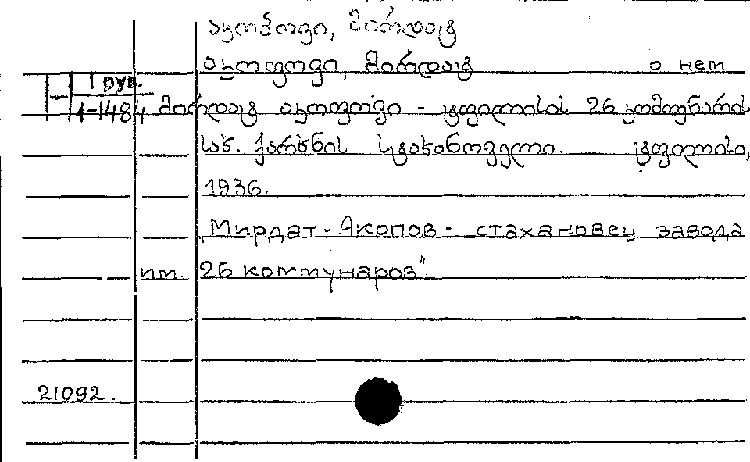 აკოფოვი, მირდატ
აკოფოვი, მირდატ о нем
1 рув.
1-1484 მირდატ აკოფოვი - ტფილისის 26 კომუნარის
სახ. ქარხნის სტახანოველი. ტფილისი,
1936.
Мирдат-Акопов - стахановец завода
им. 26 коммунаров"
21092.